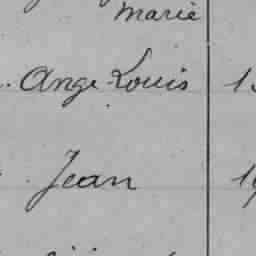 Marie
Ange Louis
Jean